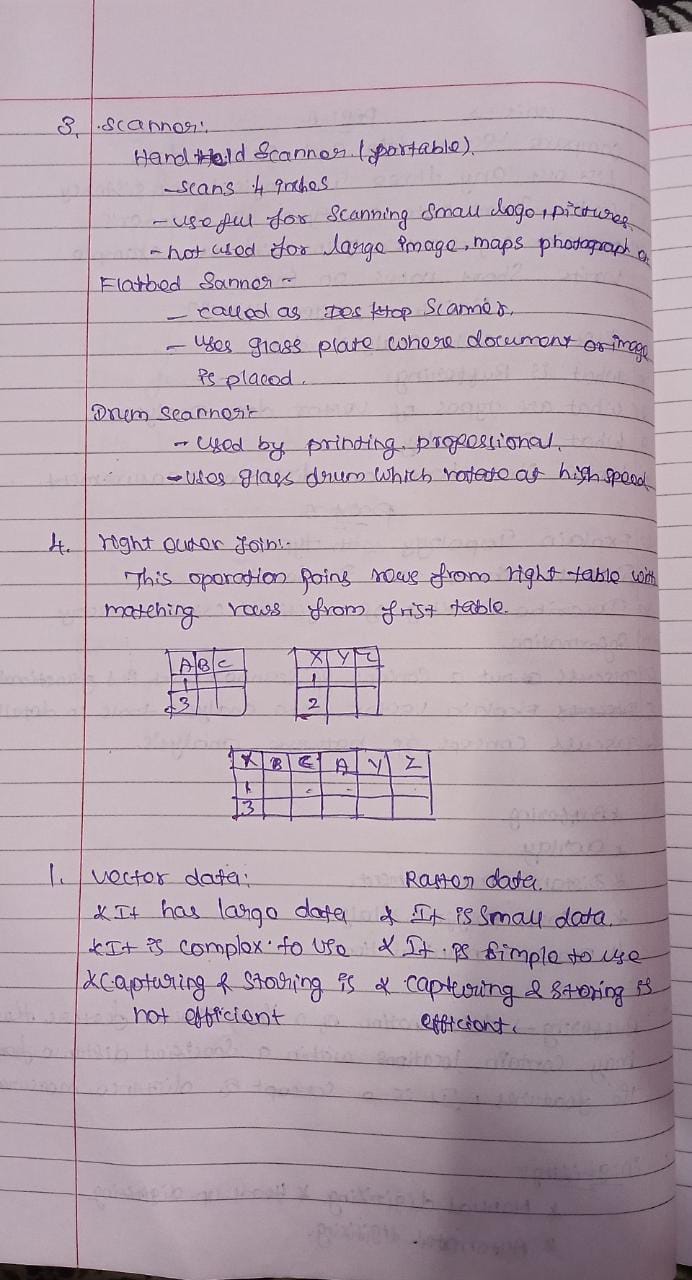 3. Scanner:
Hand Held Scanner (portable)
- Scans 4 inches
- useful for Scanning Small logo, pictures
- not used for large image, maps photograph
Flatbed Sanner -
- called as Desktop Scanner.
- Uses glass plate where document or image
is placed.
Drum Scanner:-
- Used by printing professional.
- uses glass drum which rotate at high speed
4. right outer join:-
This operation joins rows from right table with
matching rows from frist table.
A B C X Y Z
1 1
3 2
X B C A Y Z
1
3
1. Vector data: Raster data.
* It has large data * It is Small data.
* It is complex to use * It is Simple to use
* Capturing & Storing is * Capturing & Storing is
not efficient efficient.